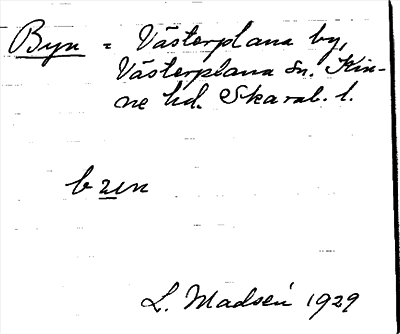 Byn = Västerplana by,
Västerplana sn. Kin-
ne hd. Skarab. l.
bɯn
L. Madsén 1929